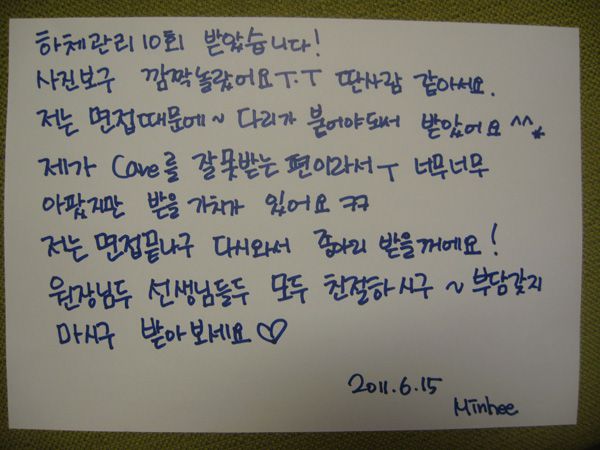 하체관리 10회 받았습니다!
사진보구 깜짝놀랐어요T.T 딴사람 같아서요.
저는 면접때문에~ 다리가 붇어야되서 받았어요^^*
제가 Care를 잘못받는 편이라서ㅜ 너무너무
아팠지만 받을 가치가 있어요 ㅋㅋ
저는 면접끝나구 다시와서 종아리 받을꺼에요!
원장님두 선생님들두 모두 친절하시구~ 부담갖지
마시구 받아보세요♡
2011.6.15
Minhee